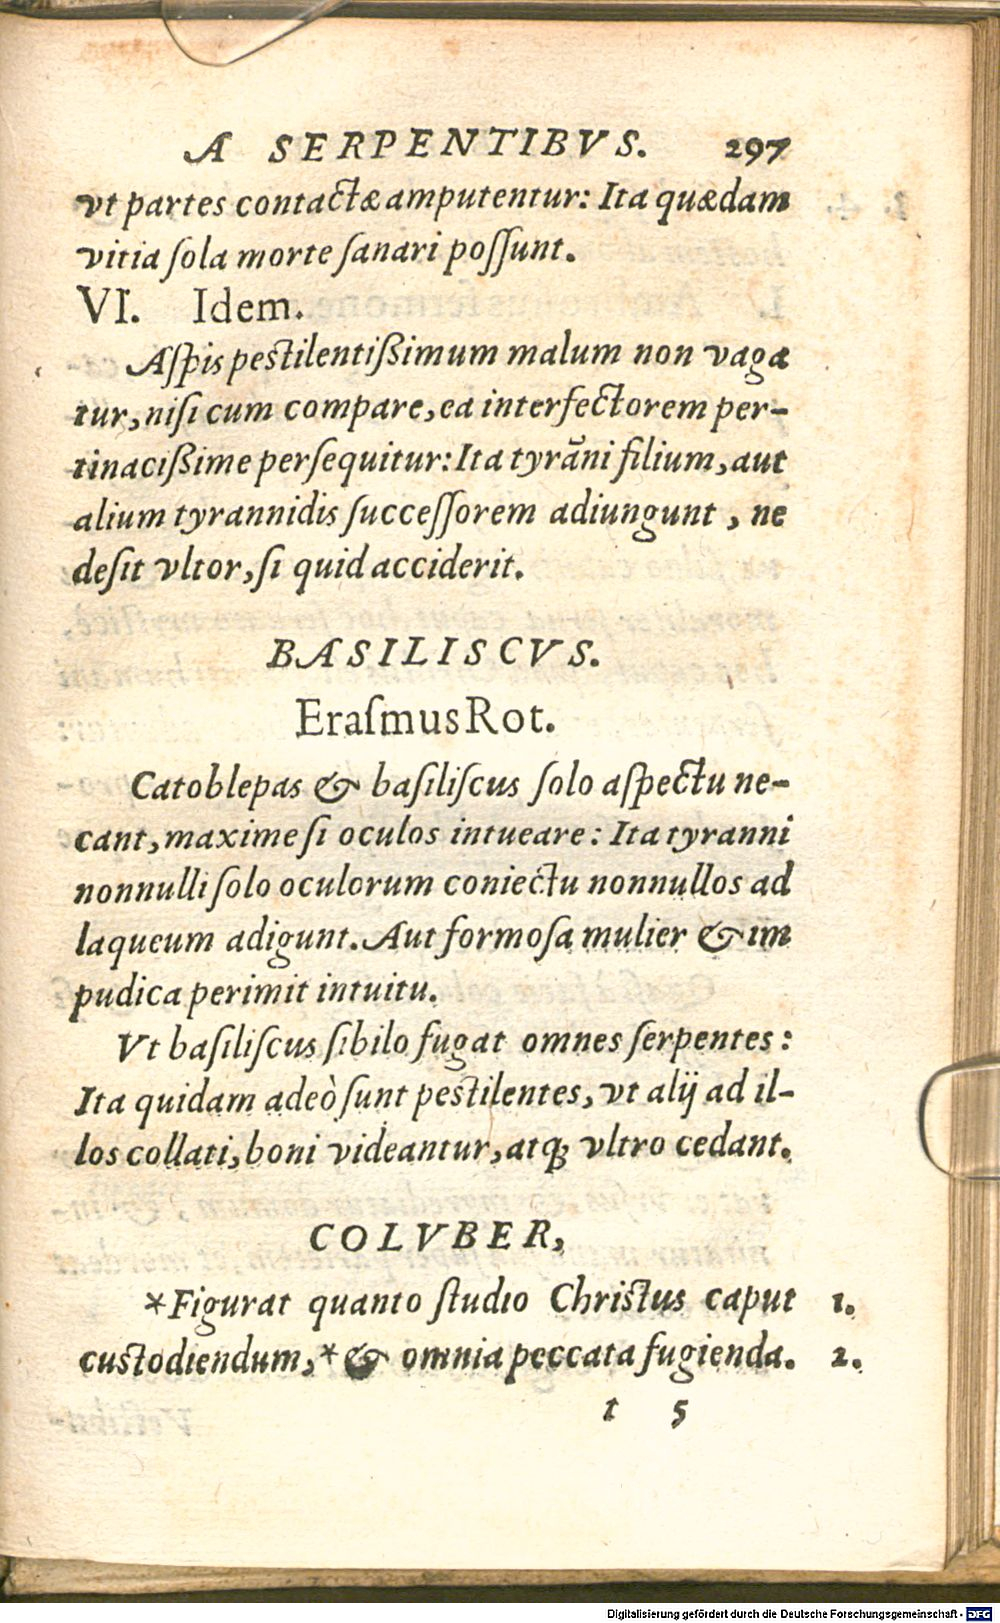 A SERPENTIBVS. 297
vt partes contactæ amputentur: Ita quædam
vitia ſola morte ſanari poſſunt.
VI. Idem.
Aſpis peſtilentißimum malum non vaga
tur, niſi cum compare, ea interfectorem per-
tinacißime perſequitur: Ita tyrāni filium, aut
alium tyrannidis ſucceſſorem adiungunt, ne
deſit vltor, ſi quid acciderit.
BASILISCVS.
Eraſmus Rot.
Catoblepas & baſiliſcus ſolo aſpectu ne-
cant, maxime ſi oculos intueare: Ita tyranni
nonnulli ſolo oculorum coniectu nonnullos ad
laqueum adigunt. Aut formoſa mulier & im
pudica perimit intuitu.
Vt baſiliſcus ſibilo fugat omnes ſerpentes:
Ita quidam adeò ſunt peſtilentes, vt alij ad il-
los collati, boni videantur, atq; vltro cedant.
COLVBER,
*Figurat quanto ſtudio Chriſtus caput 1.
cuſtodiendum,* & omnia peccata fugienda. 2.
t 5
Digitalisierung gefördert durch die Deutsche Forschungsgemeinschaft - DFG